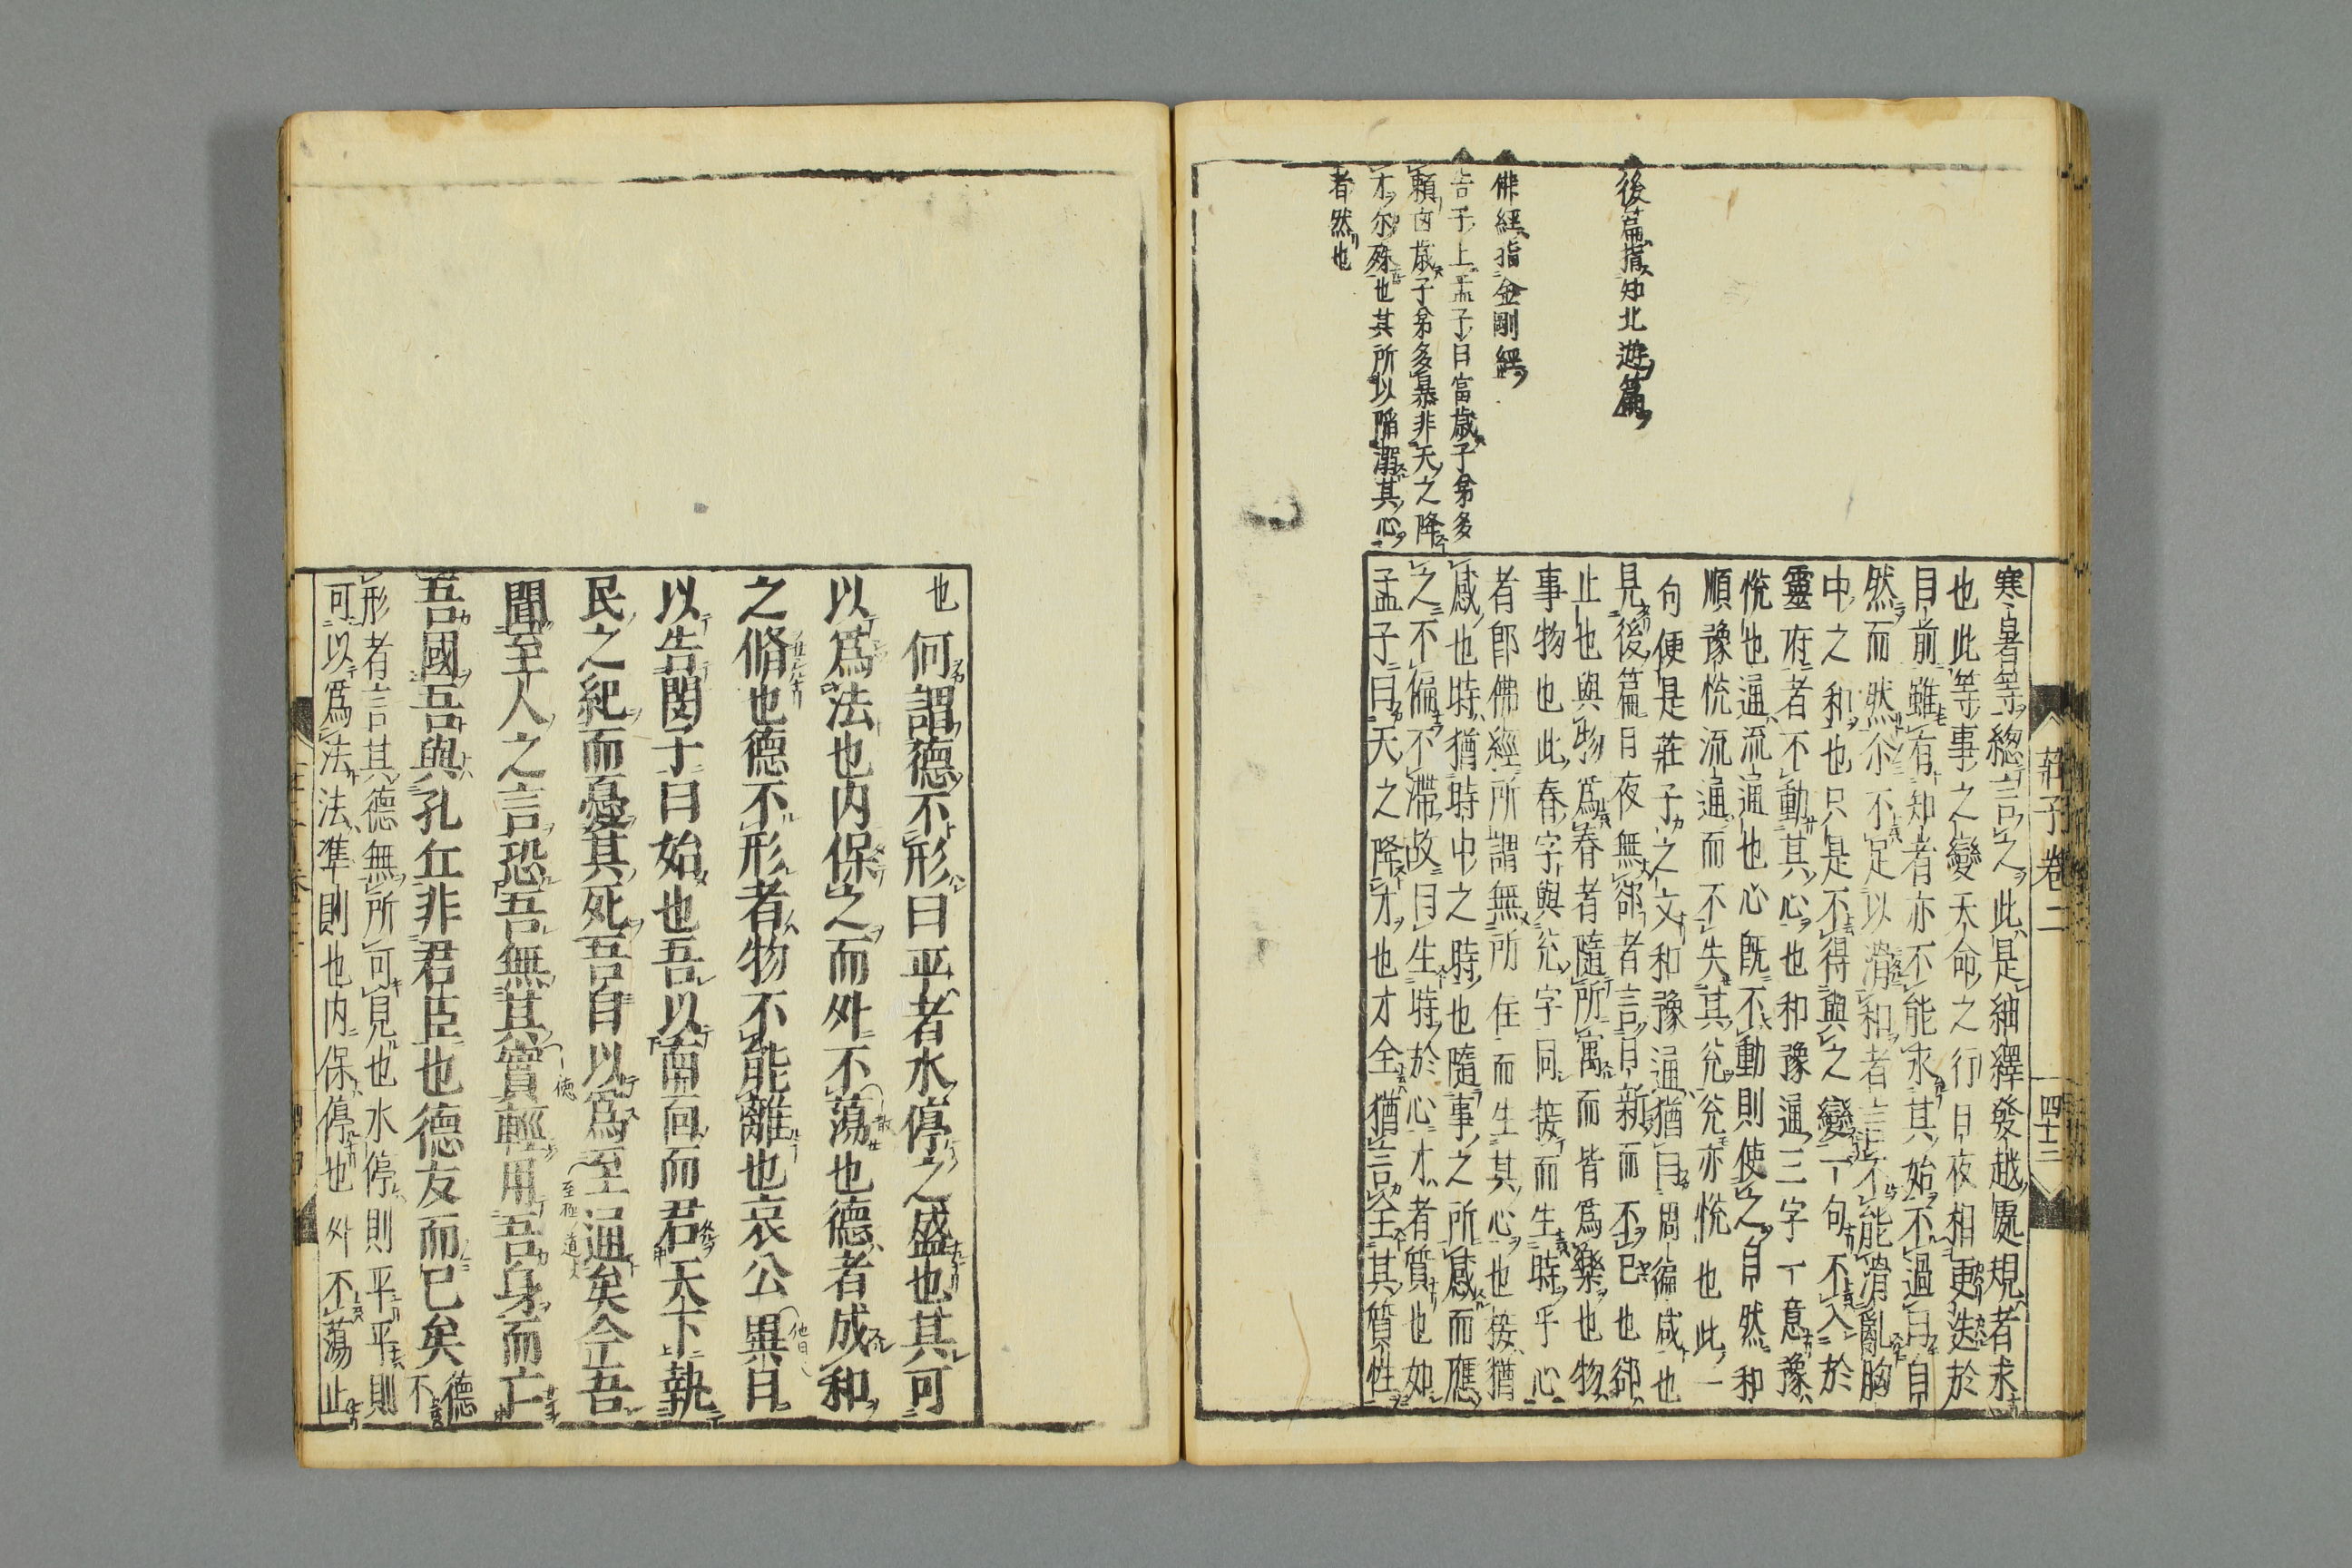 後篇指知北遊篇
佛經指金剛經
告子上孟子曰富歲子弟多
賴凶歲子弟多暴非天之降
才尓殊也其所以陷溺其心
者然也
莊子卷二
四十三
寒暑等總言之此是紬繹發越處規者求
也此等事之變天命之行日夜相更迭於
目前雖有知者亦不能求其始不過曰自
然而然尒不足以滑和者言不能滑亂胸
中之和也只是不得與之變一句不入於
靈府者不動其心也和豫通三字一意豫
悅也通流通也心既不動則使之自然和
順豫悅流通而不失其兊兊亦悅也此一
句便是莊子之文和豫通猶曰周徧咸也
見後篇日夜無郤者言日新而不已也郤
止也與物爲春者隨所寓而皆爲樂也物
事物也此春字與兊字同接而生時乎心
者卽佛經所謂無所住而生其心也接猶
感也時猶時中之時也隨事之所感而應
之不偏不滯故曰生時於心才者質也如
孟子曰天之降才也才全猶言全其質性
也何謂德不形曰平者水停之盛也其可
以爲法也内保之而外不蕩也德者成和
之脩也德不形者物不能離也哀公異日
以告閔子曰始也吾以南面而君天下執
民之紀而憂其死吾自以爲至通矣今吾
聞至人之言恐吾無其實輕用吾身而亡
吾國吾與孔丘非君臣也德友而已矣德不
形者言其德無所可見也水停則平平則
可以爲法法準則也内保停也外不蕩止